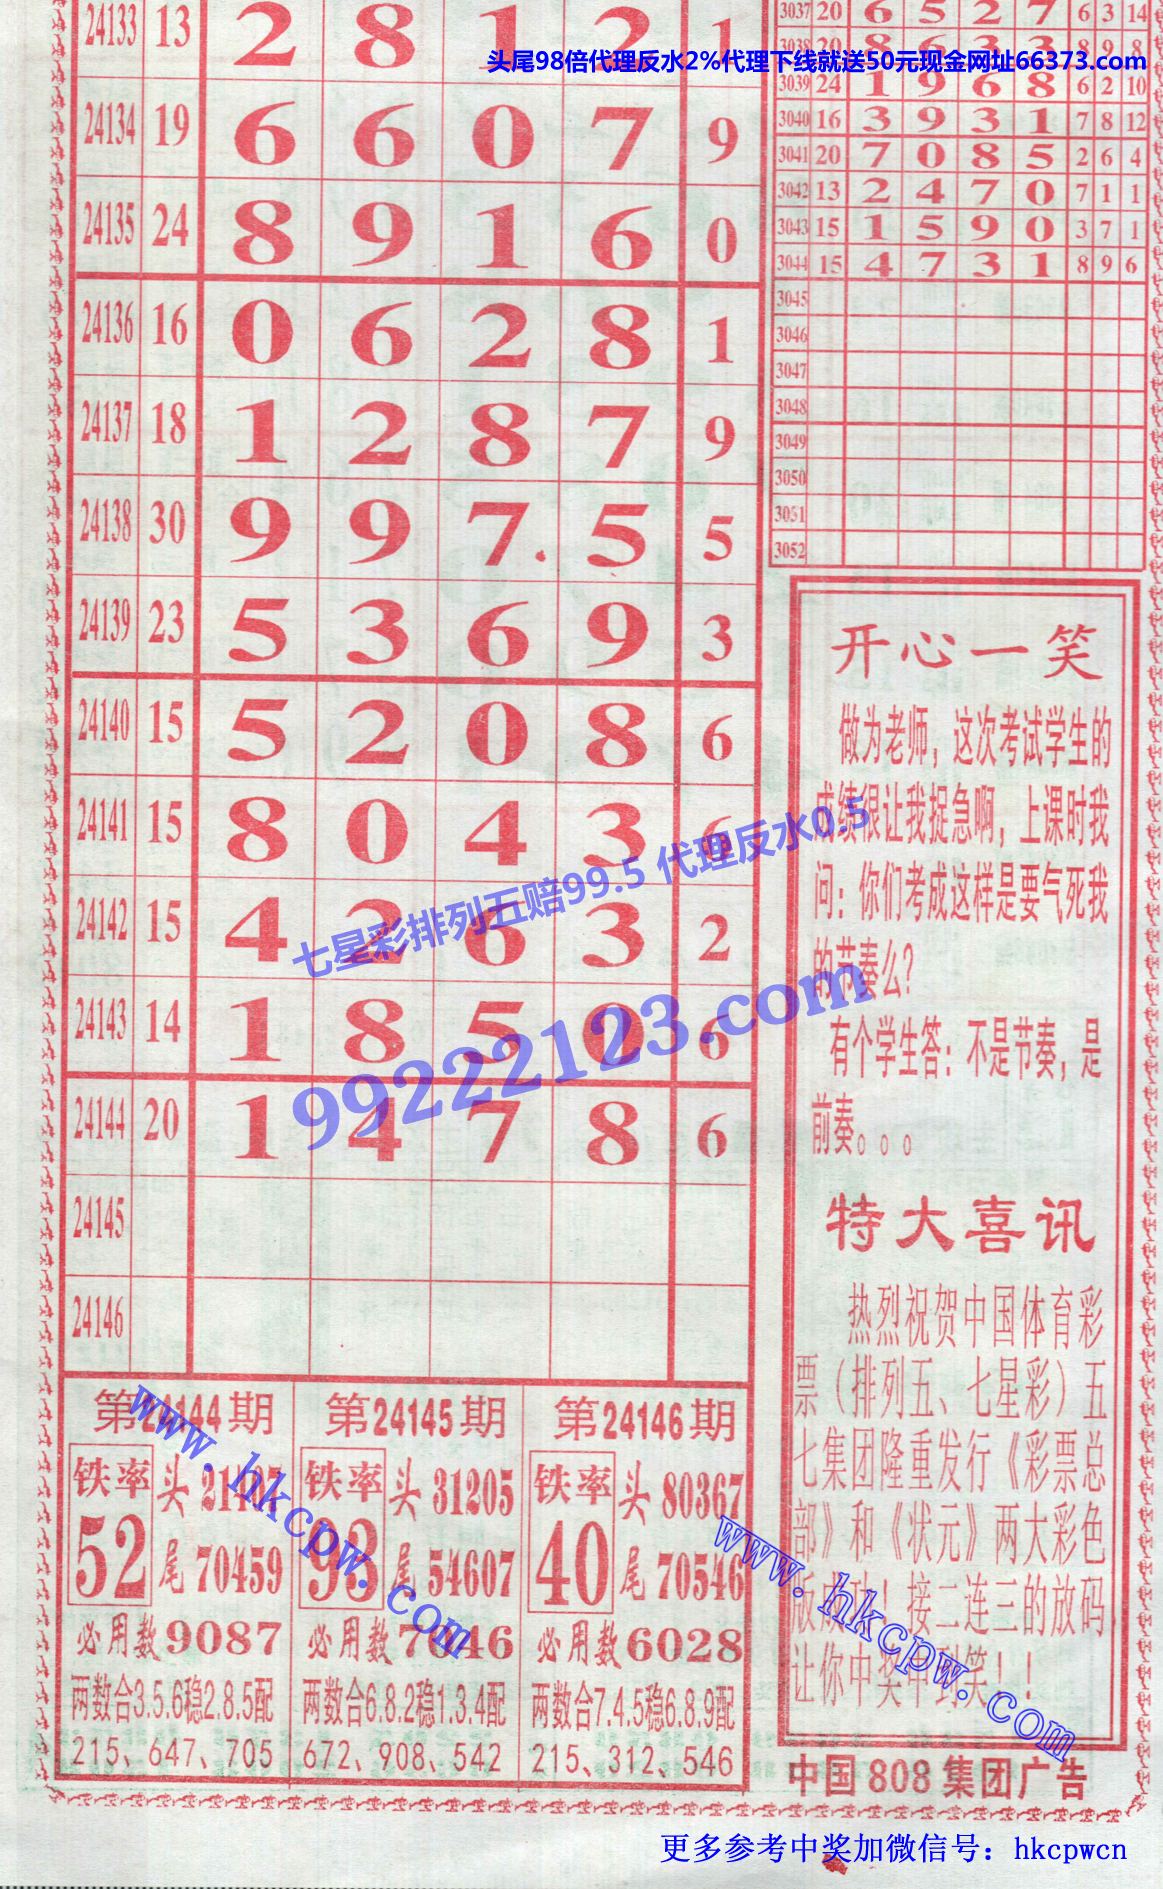 24133 13 2 8 1 2 1
24134 19 6 6 0 7 9
24135 24 8 9 1 6 0
24136 16 0 6 2 8 1
24137 18 1 2 8 7 9
24138 30 9 9 7 5 5
24139 23 5 3 6 9 3
24140 15 5 2 0 8 6
24141 15 8 0 4 3 6
24142 15 4 2 6 3 2
24143 14 1 8 5 0 6
24144 20 1 4 7 8 6
24145
24146
3037 20 6 5 2 7 6 3 14
3038 20 8 6 3 3 8 9 8
3039 24 1 9 6 8 6 2 10
3040 16 3 9 3 1 7 8 12
3041 20 7 0 8 5 2 6 4
3042 13 2 4 7 0 7 1 1
3043 15 1 5 9 0 3 7 1
3044 15 4 7 3 1 8 9 6
3045
3046
3047
3048
3049
3050
3051
3052
头尾98倍代理反水2%代理下线就送50元现金网址66373.com
开心一笑
做为老师，这次考试学生的
成绩很让我捉急啊，上课时我
问：你们考成这样是要气死我
的节奏么？
有个学生答：不是节奏，是
前奏。。。
特大喜讯
热烈祝贺中国体育彩
票（排列五、七星彩）五
七集团隆重发行《彩票总
部》和《状元》两大彩色
版成功！接二连三的放码
让你中奖中到笑！！
中国808集团广告
七星彩排列五赔99.5 代理反水0.5
99222123.com
第24144期
铁率 52
头
尾 70459
必用数9087
两数合3.5.6稳2.8.5配
215、647、705
第24145期
铁率 93
头 31205
尾 54607
必用数7046
两数合6.8.2稳1.3.4配
672、908、542
第24146期
铁率 40
头 80367
尾 70546
必用数6028
两数合7.4.5稳6.8.9配
215、312、546
www.hkcpw.com
www.hkcpw.com
更多参考中奖加微信号：hkcpwcn